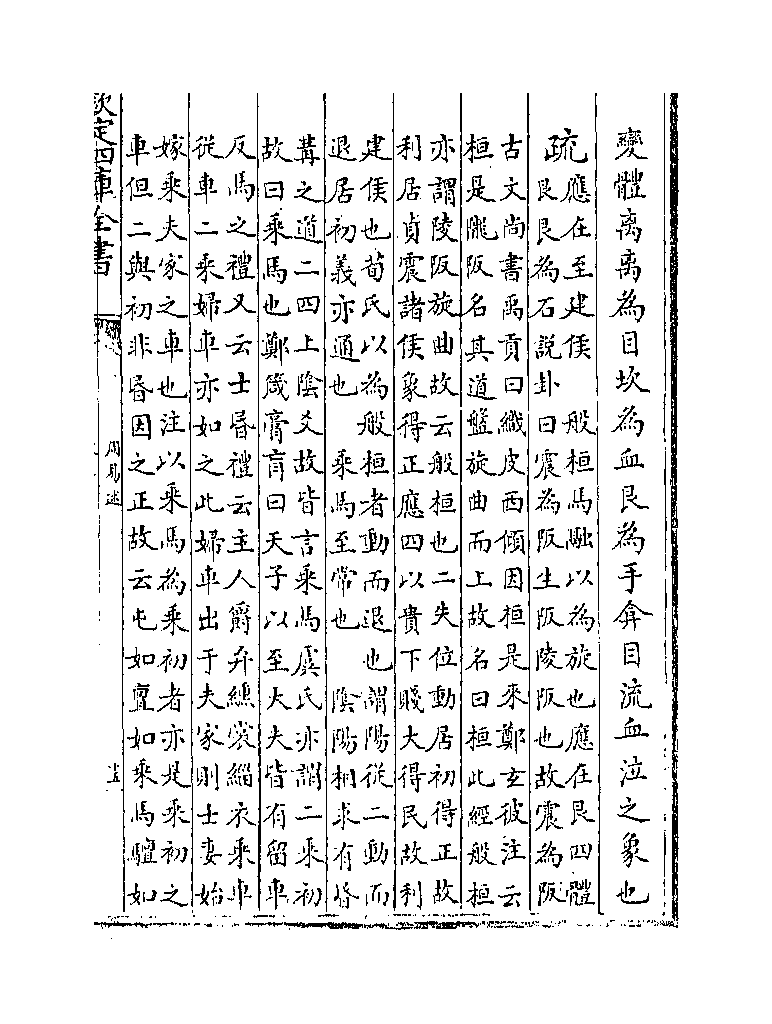 變體离离為目坎為血艮為手弇目流血泣之象也
疏應在至建侯　般桓馬融以為旋也應在艮四體
艮艮為石說卦曰震為阪生阪陵阪也故震為阪
古文尚書禹貢曰織皮西傾因桓是來鄭玄彼注云
桓是隴阪名其道盤旋曲而上故名曰桓此經般桓
亦謂陵阪旋曲故云般桓也二失位動居初得正故
利居貞震諸侯象得正應四以貴下賤大得民故利
建侯也荀氏以為般桓者動而退也謂陽從二動而
退居初義亦通也　乘馬至常也　陰陽相求有昏
冓之道二四上陰爻故皆言乘馬虞氏亦謂二乘初
故曰乘馬也鄭箴膏肓曰天子以至大夫皆有留車
反馬之禮又云士昏禮云主人爵弁纁裳緇衣乘車
從車二乘婦車亦如之此婦車出于夫家則士妻始
嫁乘夫家之車也注以乘馬為乘初者亦是乘初之
車但二與初非昏因之正故云屯如亶如乘馬驙如
欽定四庫全書
周易述